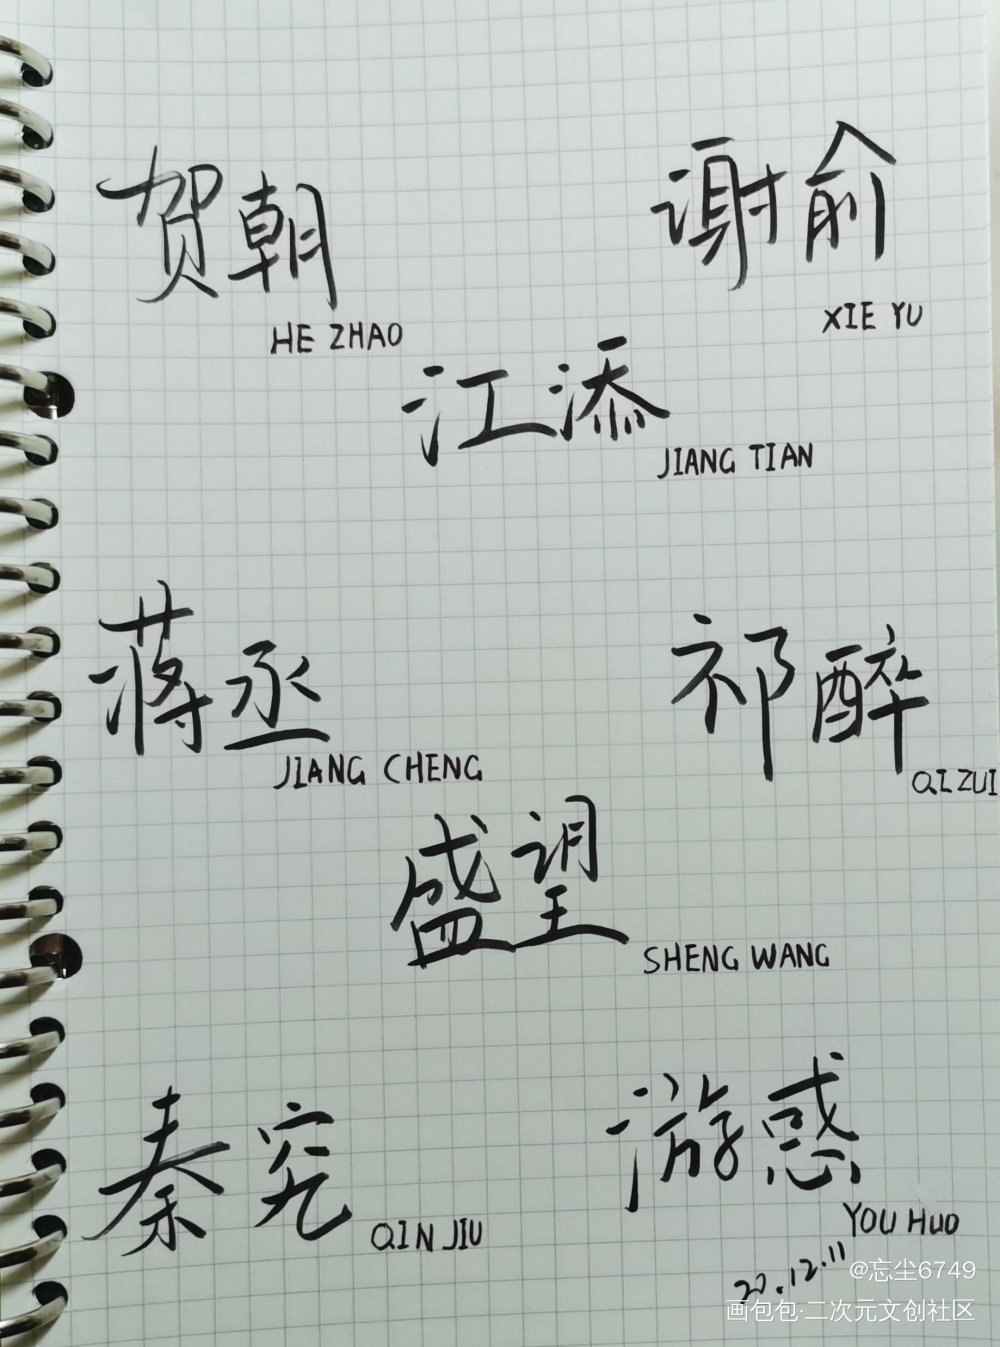 贺朝
谢俞
HE ZHAO
XIE YU
江添
JIANG TIAN
蒋丞
祁醉
JIANG CHENG
QI ZUI
盛望
SHENG WANG
秦究
游惑
QIN JIU
YOU HUO
20.12.11
@忘尘6749
画包包·二次元文创社区